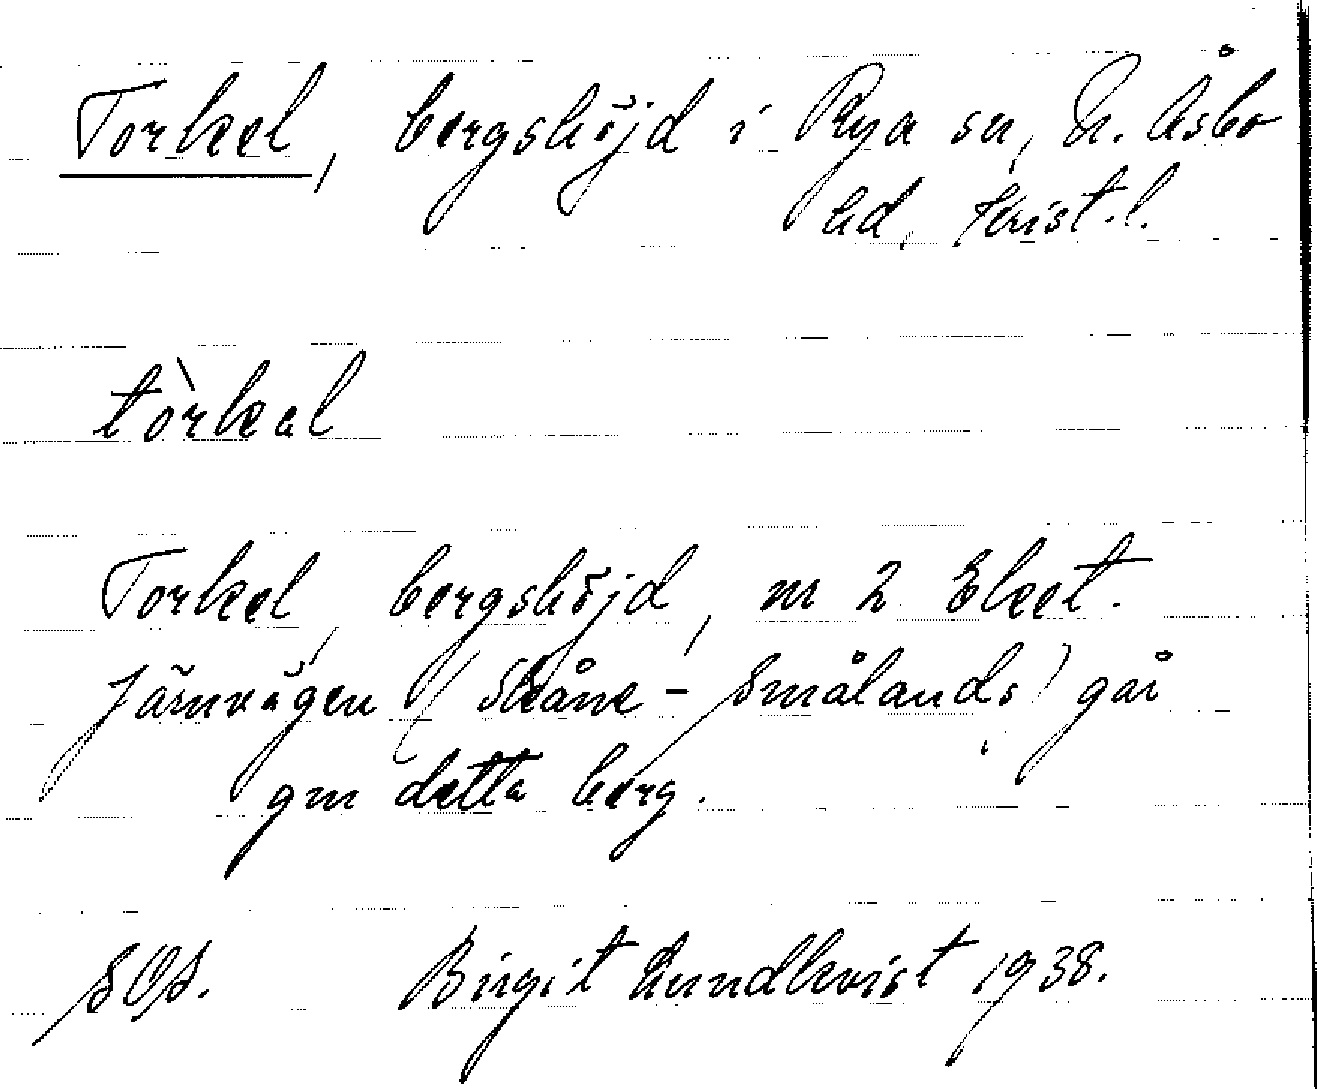 Torkel, bergshöjd i Rya sn, N. Åsbo
hd, Krist. l.
tòrkal
Torkel, bergshöjd, nr 2 Ekeet.
Järnvägen (Skåne-Smålands) går
gm detta berg.
SOA. Birgit Lundkvist 1938.